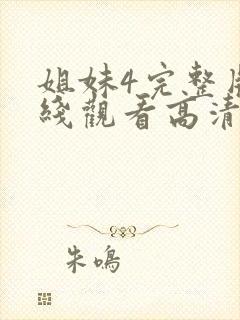 姐妹4完整
綫觀看高清
朱鳴